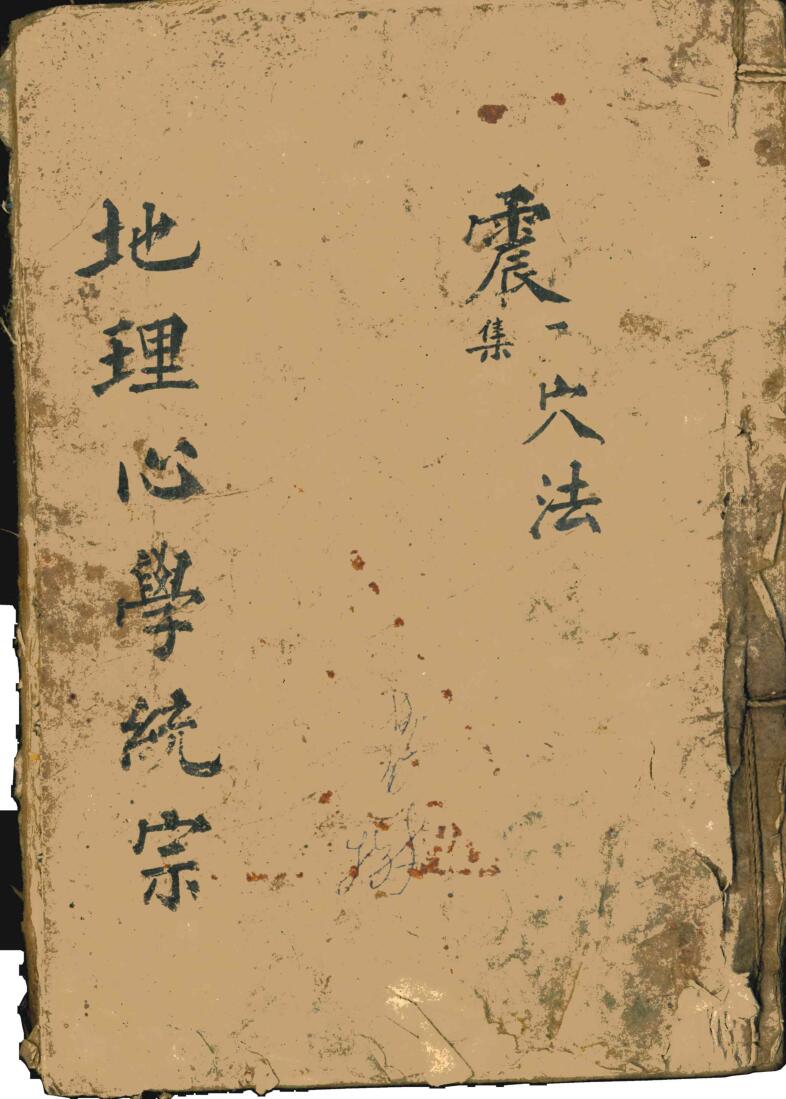 震集
一穴法
地理心學統宗